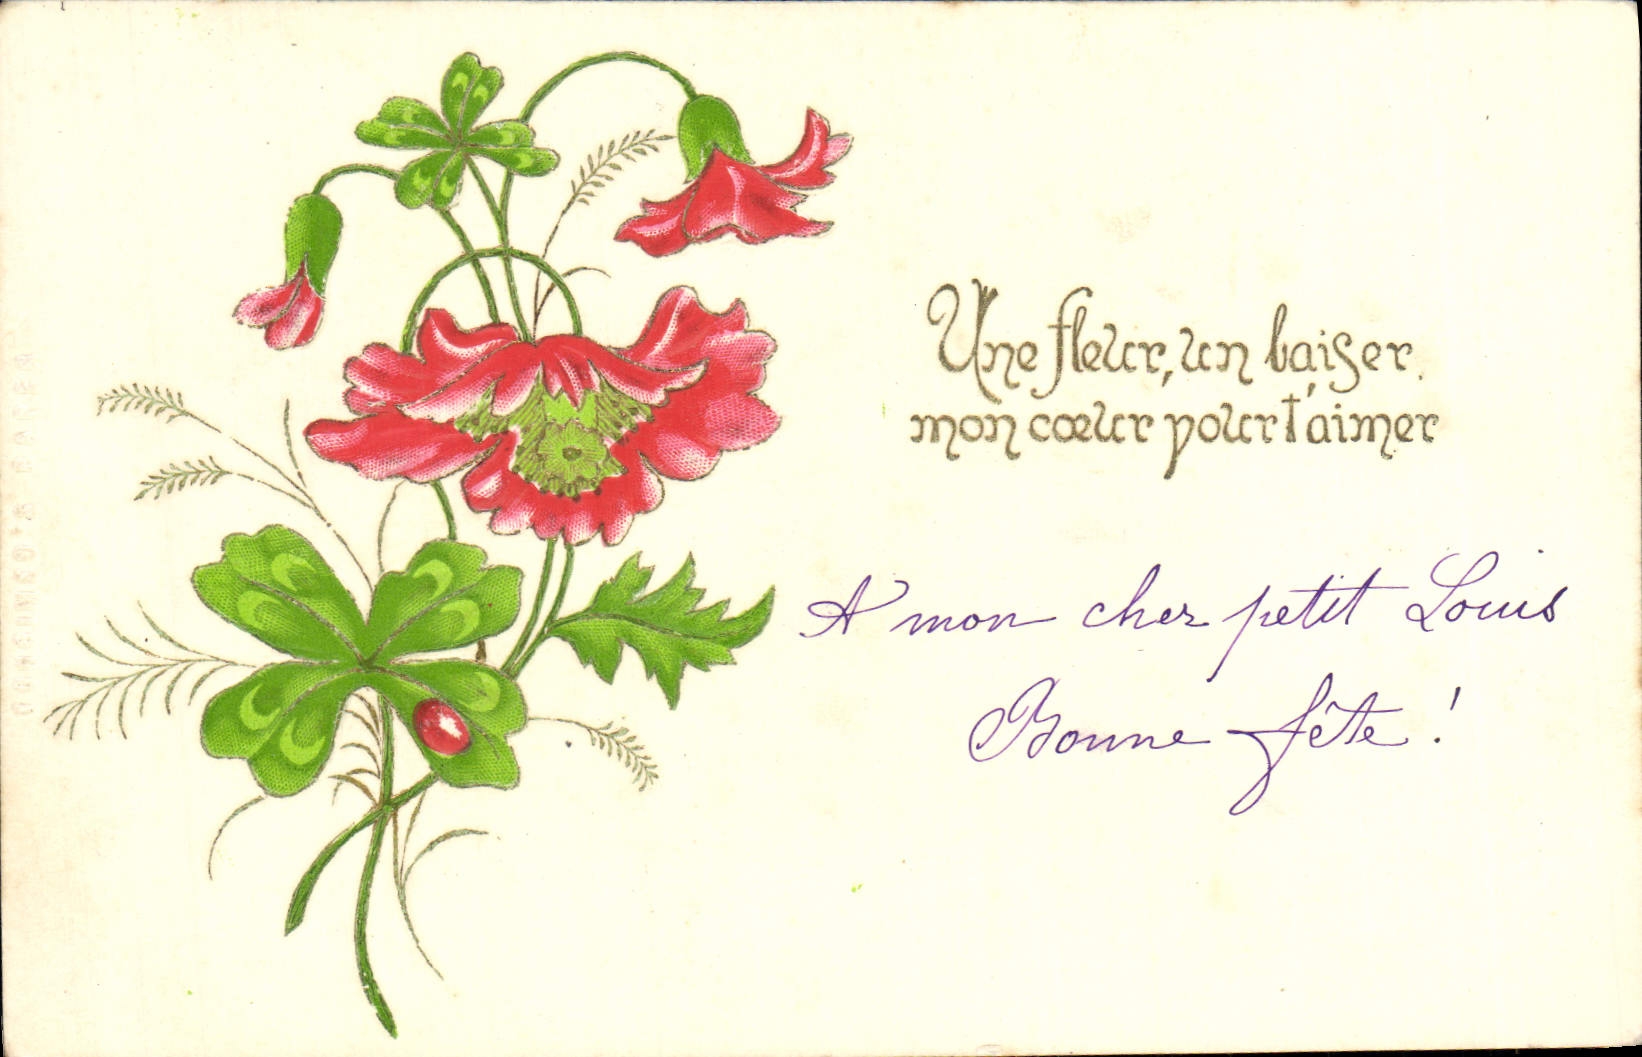 Une fleur, un baiser
mon cœur pour t'aimer
A mon cher petit Louis
Bonne fête !